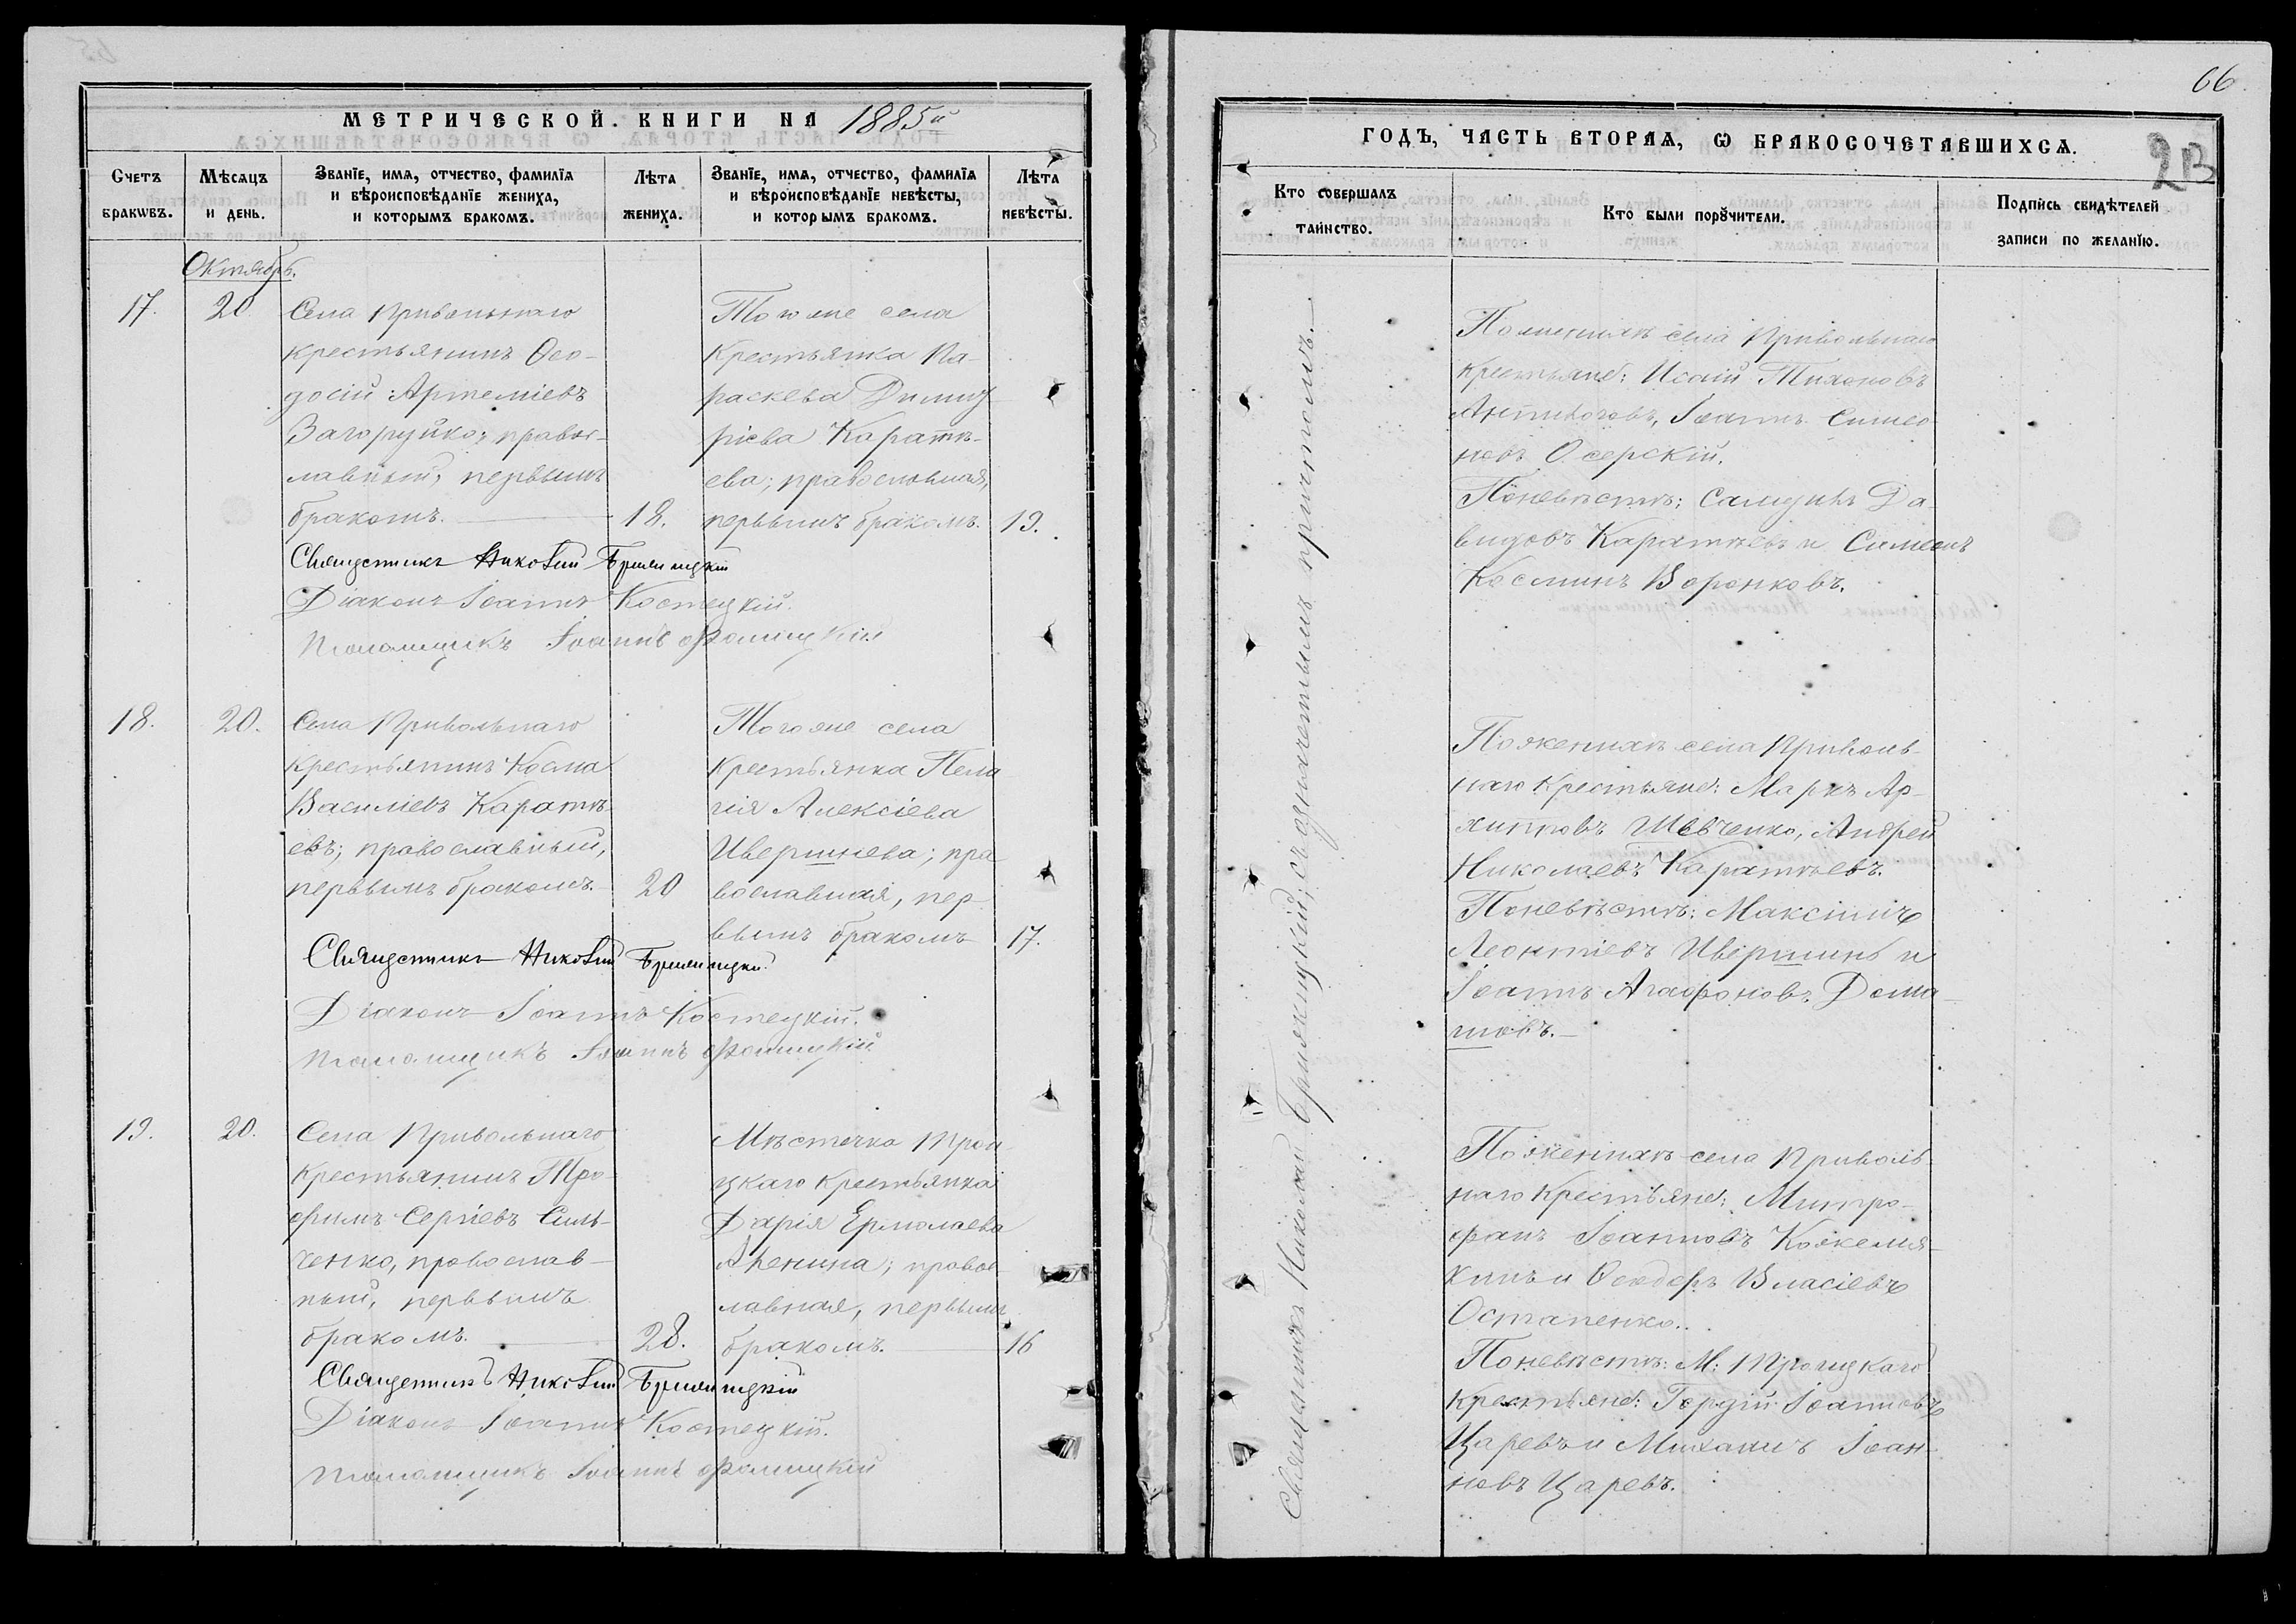 66
МЕТРИЧЕСКОЙ КНИГИ НА 1885й
Счетъ браковъ.
Мѣсяцъ и день.
Званіе, имя, отчество, фамилія и вѣроисповѣданіе жениха, и которымъ бракомъ.
Лѣта жениха.
Званіе, имя, отчество, фамилія и вѣроисповѣданіе невѣсты, и которымъ бракомъ.
Лѣта невѣсты.
Октябрь.
17.
20
Села Привольнаго
крестьянинъ Ѳео-
досій Артеміевъ
Загоруйко; правос-
лавный, первымъ
бракомъ.
18.
Тогоже села
крестьянка Па-
раскева Димит
ріева Каратѣ-
ева; православная,
первымъ бракомъ.
19.
Священникъ Николай
Діаконъ Іоаннъ Костецкій.
Іоаннъ Фомицкій
18.
20.
Села Привольнаго
крестьянинъ Косма
Василіевъ Каратѣ-
евъ; православный,
первымъ бракомъ.
20
Тогоже села
крестьянка Пела
гія Алексіева
Ивершнева; пра
вославная, пер-
вымъ бракомъ
17.
Священникъ Николай
Діаконъ Іоаннъ Костецкій.
Іоаннъ Фомицкій
19.
20.
Села Привольнаго
крестьянинъ Тро-
фимъ Сергіевъ Силь-
ченко, православ-
ный, первымъ
бракомъ.
28.
Мѣстечка Трои
цкаго крестьянка
Дарія Ермолаева
правос-
лавная, первымъ
бракомъ.
16
Священникъ Николай
Діаконъ Іоаннъ Костецкій.
Іоаннъ Фомицкій
ГОДЪ, ЧАСТЬ ВТОРАЯ, Ѡ БРАКОСОЧЕТАВШИХСЯ.
2В
Кто совершалъ таинство.
Кто были поручители.
Подпись свидѣтелей записи по желанію.
Священникъ Николай съ означеннымъ причтомъ.
По женихѣ села Привольнаго
крестьяне: Исаій Тихоновъ
Іоаннъ Симео
новъ Озерскій.
По невѣстѣ: Самуилъ Да-
видовъ Каратѣевъ и Симеонъ
Косминъ Воронковъ.
По женихѣ села Приволь-
наго крестьяне: Маркъ Ар-
хиповъ Шевченко, Андрей
Николаевъ Каратѣевъ.
По невѣстѣ: Максимъ
Леонтіевъ Ивершинъ и
Іоаннъ Агафоновъ Дома-
шовъ.
По женихѣ села Приволь
наго крестьяне: Митро-
фанъ Іоанновъ Кожемя-
кинъ и Ѳеодоръ Власіевъ
Остапенко.
По невѣстѣ: М: Троицкаго
крестьяне: Гордій Іоанновъ
Царевъ и Михаилъ Іоан-
новъ Царевъ.